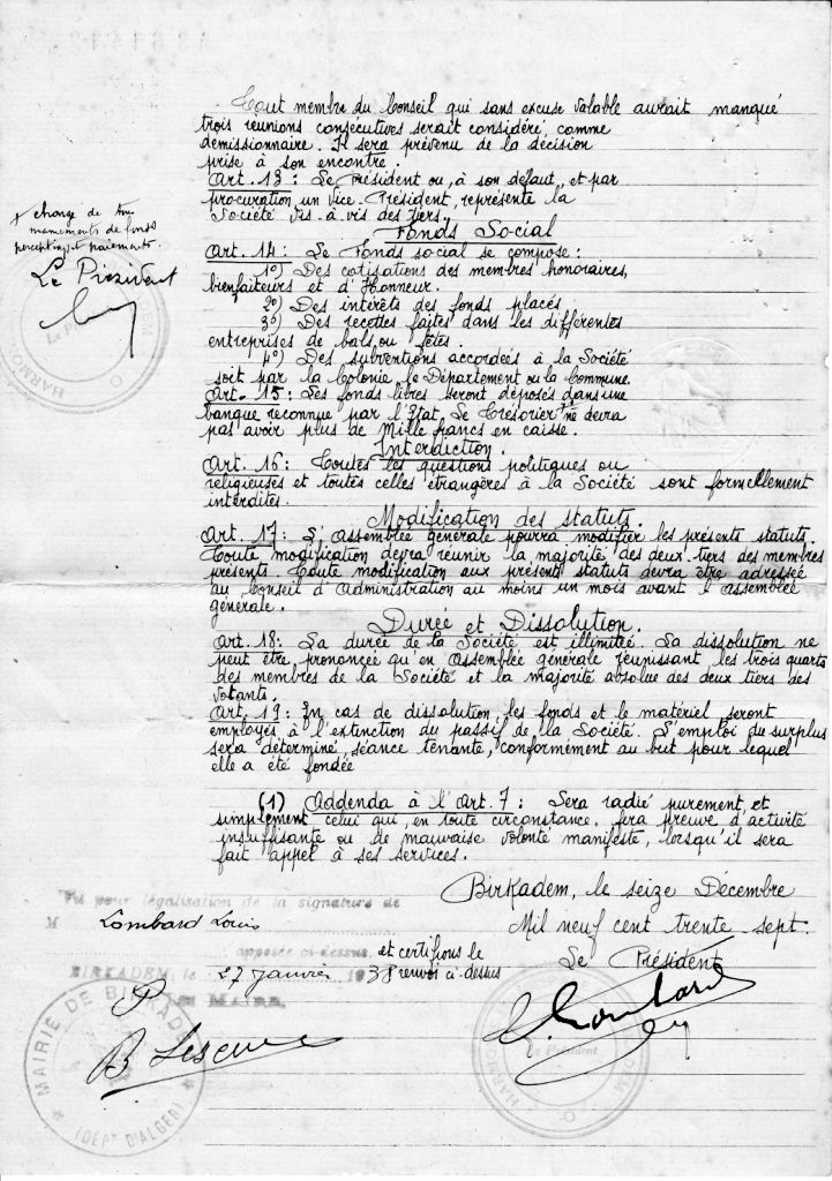 Tout membre du Conseil qui sans excuse valable aurait manqué
trois réunions consécutives serait considéré, comme
démissionnaire. Il sera prévenu de la décision
prise à son encontre.
Art. 13 : Le Président ou, à son défaut, et par
procuration un Vice-Président, représente la
Société vis-à-vis des Tiers.
+ chargé de
de fonds
perceptions et paiements.
Le Président
Fonds Social
Art. 14 : Le Fonds social se compose :
1°) Des cotisations des membres honoraires,
bienfaiteurs et d'Honneur.
2°) Des intérêts des fonds placés
3°) Des recettes faites dans les différentes
entreprises de bals ou fêtes.
4°) Des subventions accordées à la Société
soit par la Colonie, le Département ou la Commune.
Art. 15 : Les fonds libres seront déposés dans une
banque reconnue par l'Etat. Le Trésorier + ne devra
pas avoir plus de Mille francs en caisse.
Interdiction.
Art. 16 : Toutes les questions politiques ou
religieuses et toutes celles étrangères à la Société sont formellement
interdites.
Modification des statuts.
Art. 17 : L'Assemblée générale pourra modifier les présents statuts.
Toute modification devra réunir la majorité des deux-tiers des membres
présents. Toute modification aux présents statuts devra être adressée
au Conseil d'Administration au moins un mois avant l'Assemblée
générale.
Durée et Dissolution.
Art. 18 : La durée de la Société est illimitée. La dissolution ne
peut être prononcée qu'en Assemblée générale réunissant les trois quarts
des membres de la Société et la majorité absolue des deux tiers des
votants.
Art. 19 : En cas de dissolution, les fonds et le matériel seront
employés à l'extinction du passif de la Société. L'emploi du surplus
sera déterminé, séance tenante, conformément au but pour lequel
elle a été fondée
(1) Addenda à l'Art. 7 : Sera radié purement, et
simplement celui qui, en toute circonstance, fera preuve d'activité
insuffisante ou de mauvaise volonté manifeste, lorsqu'il sera
fait appel à ses services.
Birkadem, le seize Décembre
Mil neuf cent trente-sept.
Le Président
L. Lombard
Le Président
Vu pour légalisation de la signature de
M Lombard Louis
apposée ci-dessus, et certifions le
BIRKADEM, le 27 Janvier 1938 renvoi ci-dessus
Le Maire,
MAIRIE DE BIRKADEM
(DEPT D'ALGER)